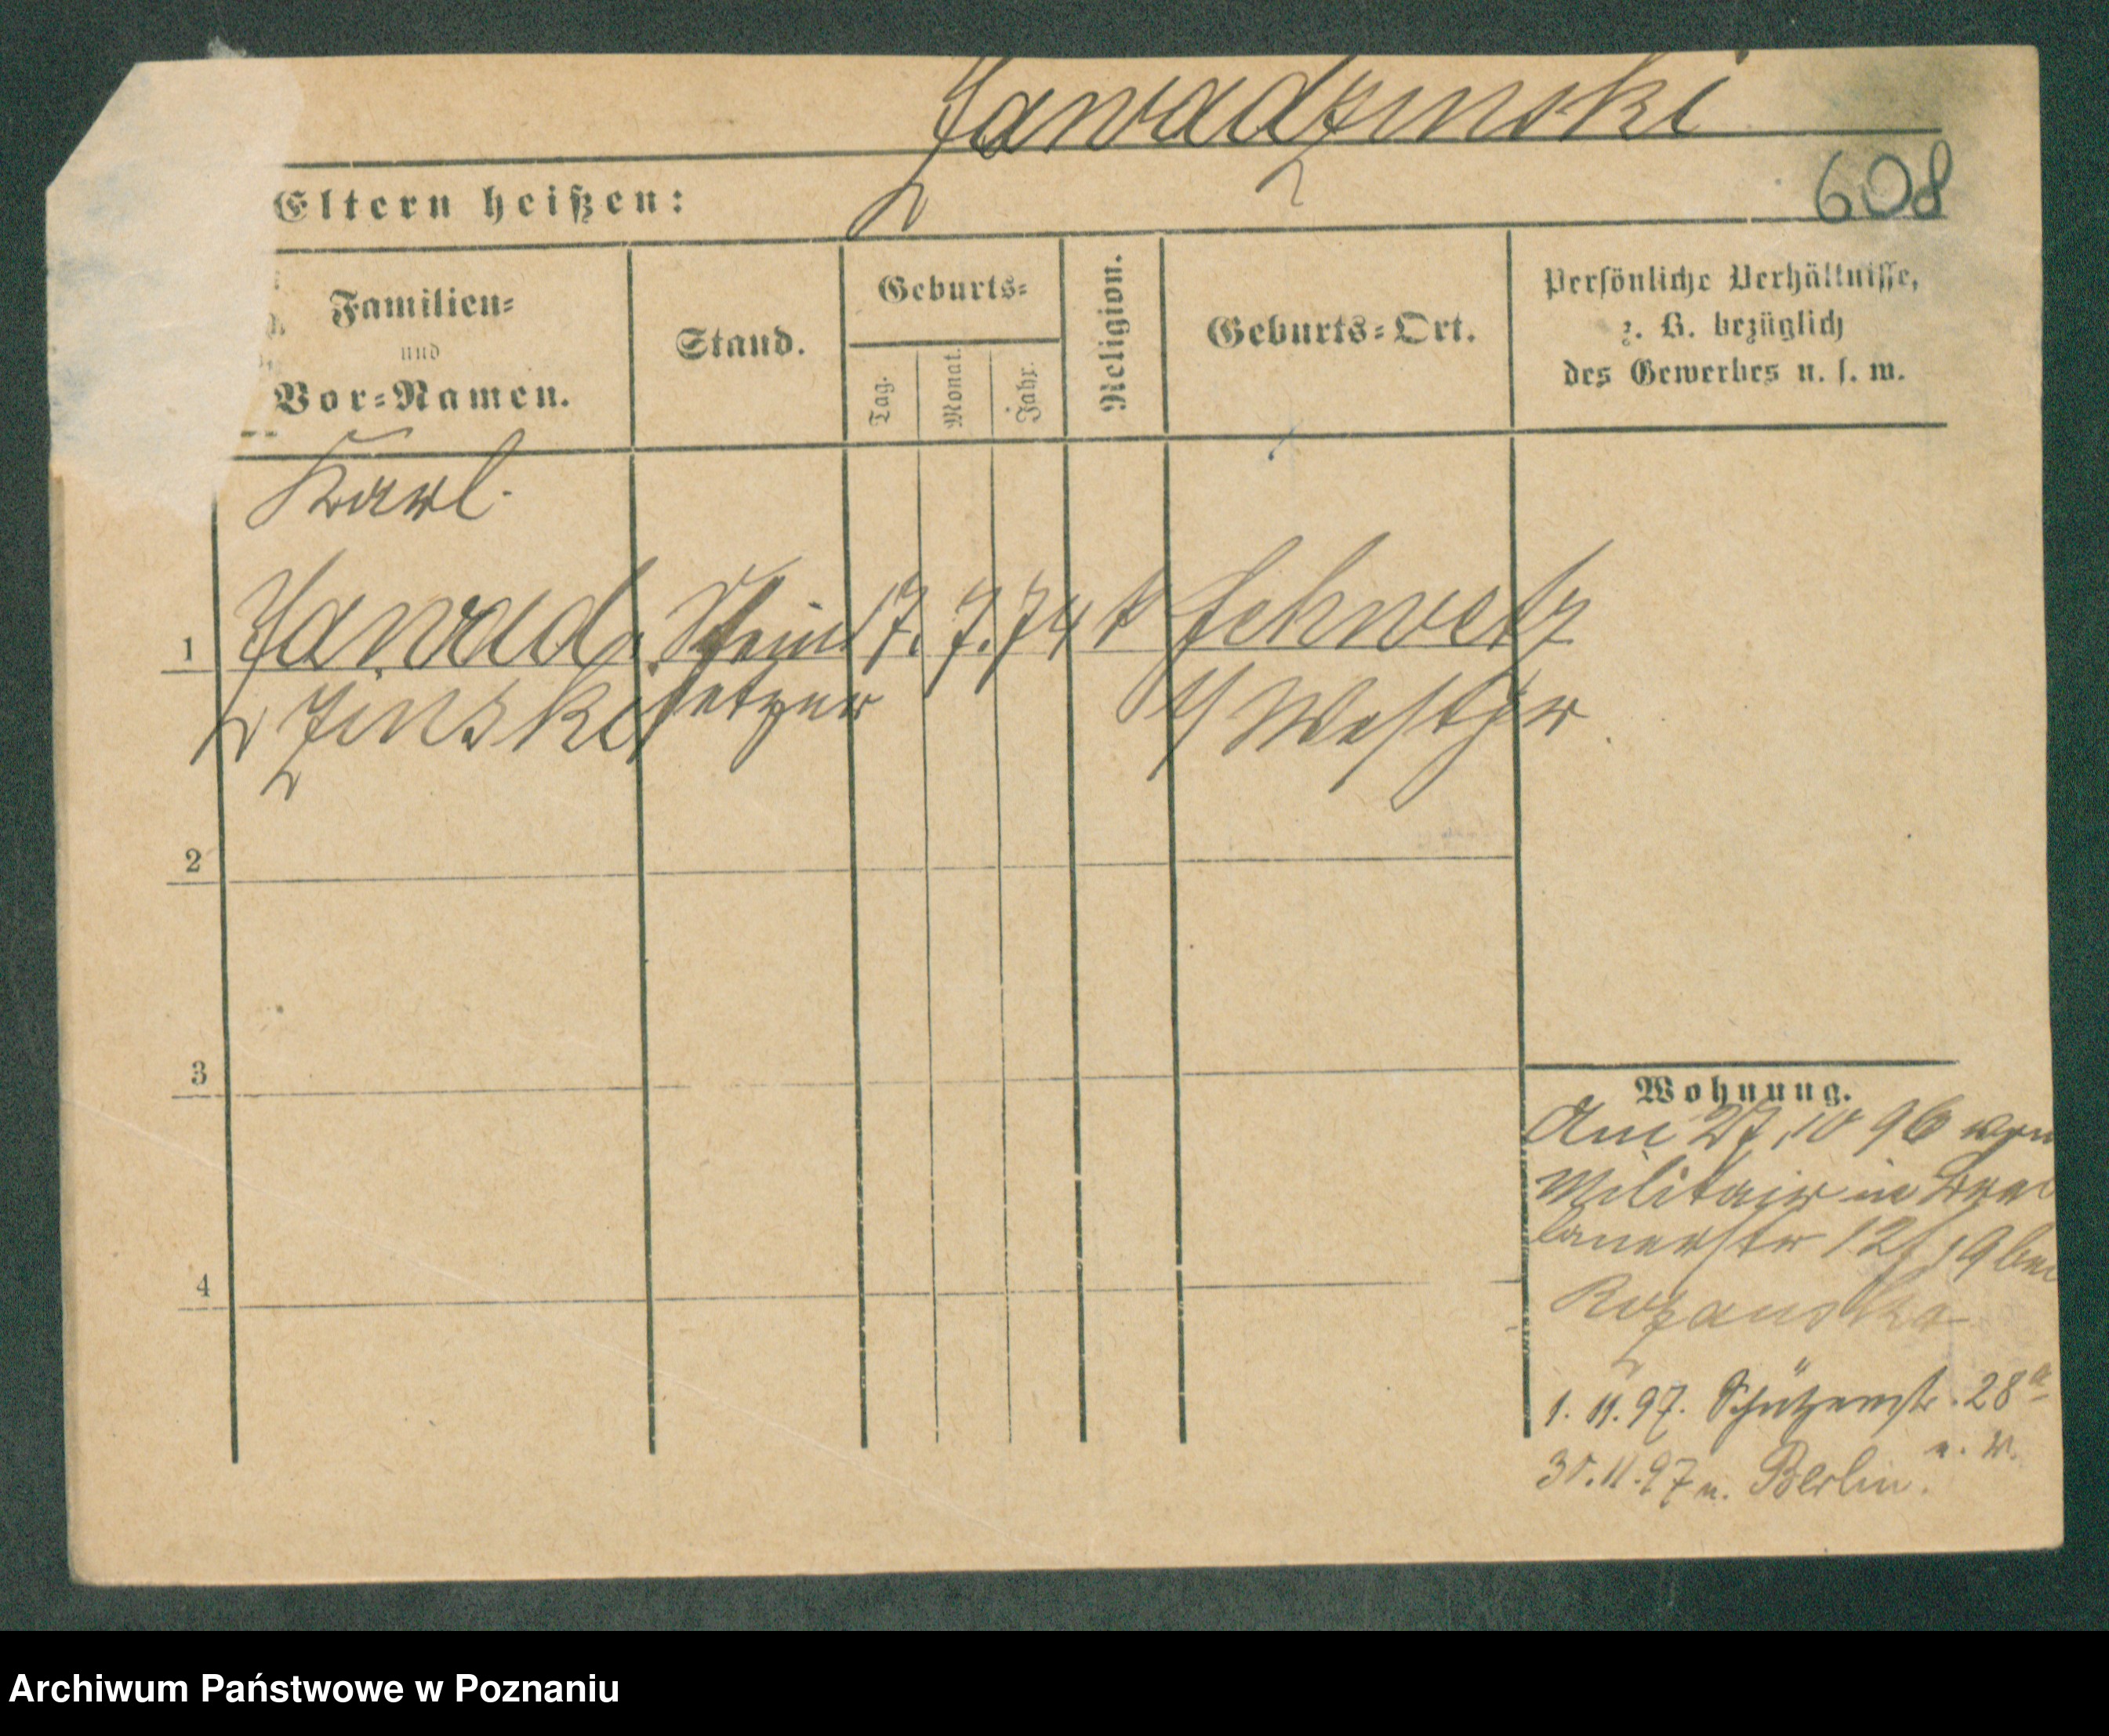 Zawadzinski
608
Eltern heißen:
Familien-
und
Vor-Namen.
Stand.
Geburts-
Tag.
Monat.
Jahr.
Religion.
Geburts-Ort.
Persönliche Verhältnisse,
z. B. bezüglich
des Gewerbes u. s. w.
Karl
1 Zawad Stein 17. 7. 74 k Schwetz
zinski setzer Westpr
2
3
4
Wohnung.
Am 27, 10 96 vom
Militair in Bres
lauerstr 12 / 19 bei
Rozanska
1. 11. 97. Schützenstr. 28a
30. 11. 97 n. Berlin.
Archiwum Państwowe w Poznaniu